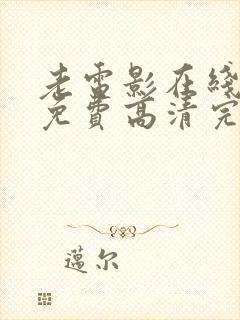 老雷影在线
免费高清完
邁尔